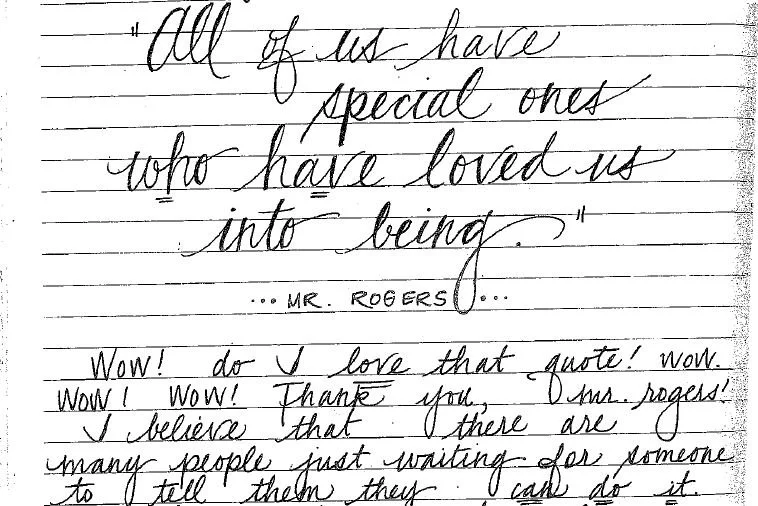 "All of us have
special ones
who have loved us
into being."
... MR. ROGERS ...
WOW! do I love that quote! WOW.
WOW! WOW! Thank you, mr. rogers!
I believe that there are
many people just waiting for someone
to tell them they can do it.